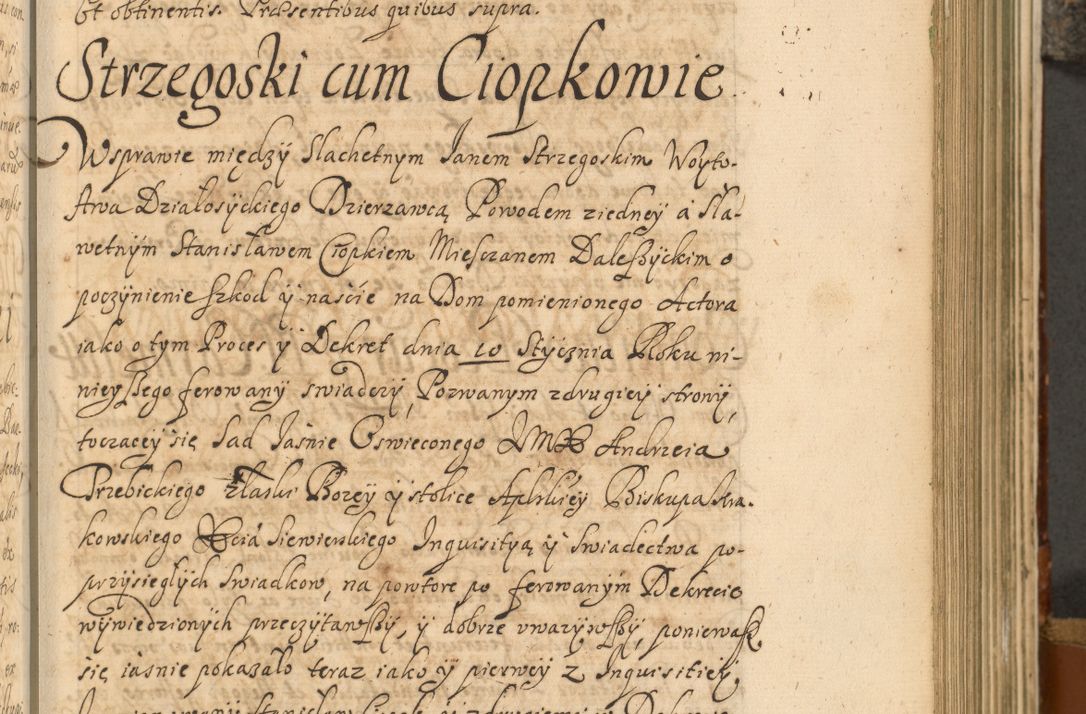 Et obtinentis. Præsentibus quibus supra.
Strzegoski cum Ciopkowie
W sprawie między Slachetnym Janem Strzegoskim Woyto-
stwa Działosyckiego Dzierzawcą Powodem z iedney a Sła-
wetnym Stanisławem Ciopkiem Miesczanem Daleszyckim o
poczynienie szkod y naście na Dom pomienionego Actora
iako o tym Proces y Dekret dnia 10 Stycznia Roku ni-
nieyszego ferowany swiadczy, Pozwanym z drugiey strony,
toczacey się Sad Jaśnie Oswieconego JMX Andrzeia
Trzebickiego z łaski Bozey y stolice Aplskiey Biskupa Kra-
kowskiego Xcia Siewierskiego Inquisityą y swiadectwa po-
przysiegłych swiadkow, na powtore po ferowanym Dekrecie
wywiedzionych przeczytawszy, y dobrze uwazywszy, poniewasz
się iasnie pokazało teraz iako y pierwey z Inquisitiey,